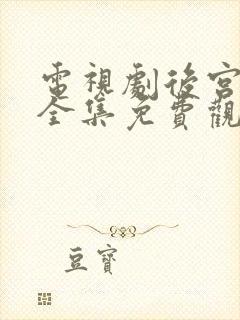 電視劇後宮
全集免費觀
豆寶